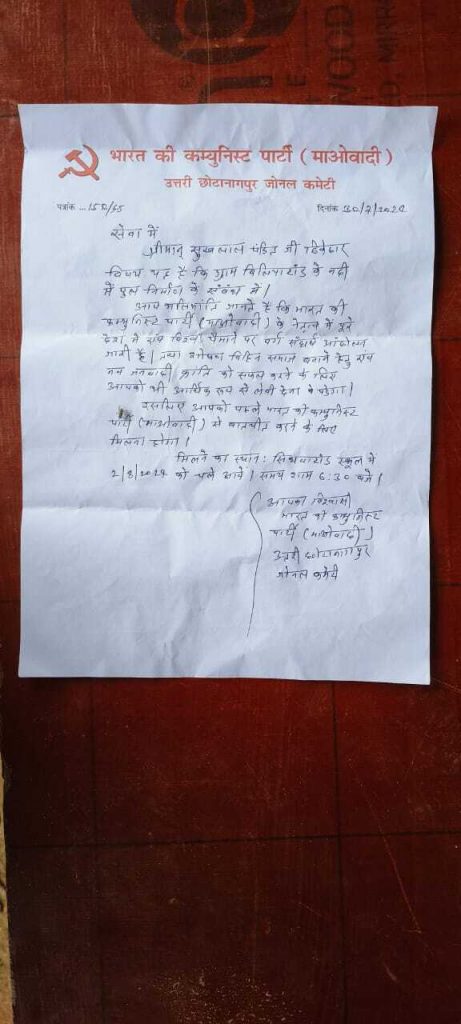 भारत की कम्युनिस्ट पार्टी ( माओवादी )
उत्तरी छोटानागपुर जोनल कमेटी
पत्रांक ... दिनांक
सेवा में
श्रीमान् सुखलाल पंडित जी ठिकेदार
विषय यह है कि ग्राम के नदी
में पुल निर्माण के संबंध में।
आप भलिभांति जानते हैं कि भारत की
कम्युनिस्ट पार्टी (माओवादी) के नेतृत्व में पुरे
देश में पैमाने पर वर्ग संघर्ष आंदोलन
जारी है। तथा शोषण विहिन समाज बनाने हेतु
नव जनवादी क्रांति को सफल करने के लिए
आपको भी आर्थिक रूप से लेवी देना पड़ेगा।
इसलिए आपको पहले भारत की कम्युनिस्ट
पार्टी (माओवादी) से बातचीत करने के लिए
मिलना होगा।
मिलने का स्थान: स्कूल में
को चले आये। समय शाम 6:30 बजे।
आपका विश्वासी
भारत की कम्युनिस्ट
पार्टी (माओवादी)
उत्तरी छोटानागपुर
जोनल कमेटी
WOOD